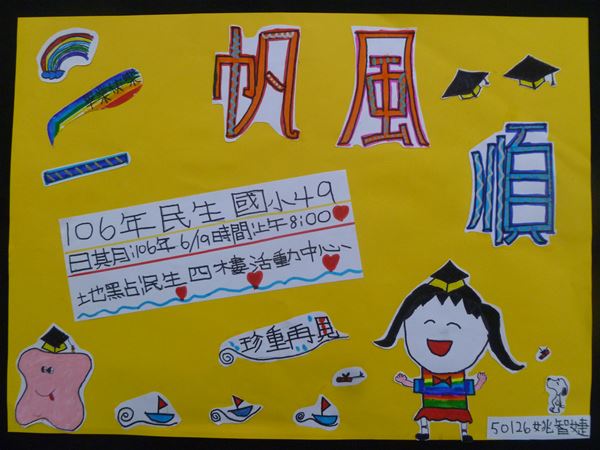 一帆風順
畢業快樂
106年民生國小49
日期:106年6/19時間:上午8:00
地點:民生四樓活動中心
珍重再見
50126姚智婕